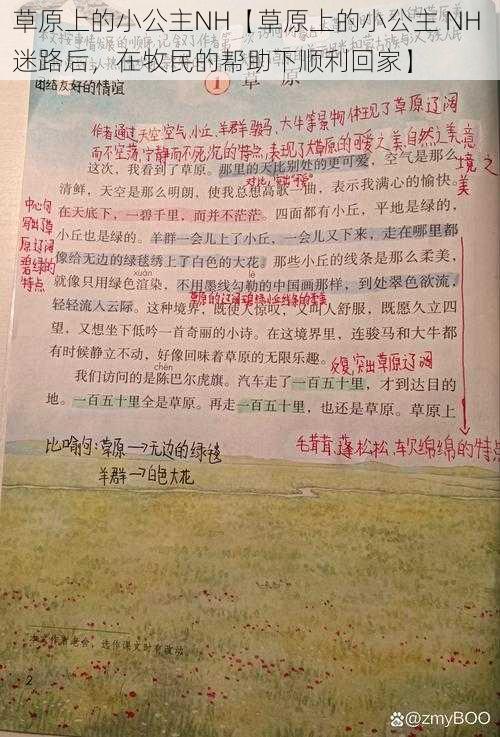 草原上的小公主NH【草原上的小公主 NH
迷路后，在牧民的帮助下顺利回家】
团结友好的情谊
1 草原
作者通过天空空气,小丘,羊群骏马,大牛等景物体现了草原辽阔
而不空荡,宁静而不死沉的特点,表现了大草原的可爱之美,自然之美,意境之美
这次，我看到了草原。那里的天比别处的更可爱，空气是那么
对比,写出可爱
清鲜，天空是那么明朗，使我总想高歌一曲，表示我满心的愉快。
在天底下，一碧千里，而并不茫茫。四面都有小丘，平地是绿的，
中心句
写出草
原辽阔
碧绿的
特点
小丘也是绿的。羊群一会儿上了小丘，一会儿又下来，走在哪里都
像给无边的绿毯绣上了白色的大花。那些小丘的线条是那么柔美，
xuàn lè
就像只用绿色渲染，不用墨线勾勒的中国画那样，到处翠色欲流，
轻轻流入云际。这种境界，既使人惊叹，又叫人舒服，既愿久立四
望，又想坐下低吟一首奇丽的小诗。在这境界里，连骏马和大牛都
有时候静立不动，好像回味着草原的无限乐趣。
反复,突出草原辽阔
chén
我们访问的是陈巴尔虎旗。汽车走了一百五十里，才到达目的
地。一百五十里全是草原。再走一百五十里，也还是草原。草原上
比喻句:草原→无边的绿毯
羊群→白色大花
毛茸茸,蓬松松,软绵绵的特点
本文作者老舍，选作课文时有改动。
2
@zmyBOO